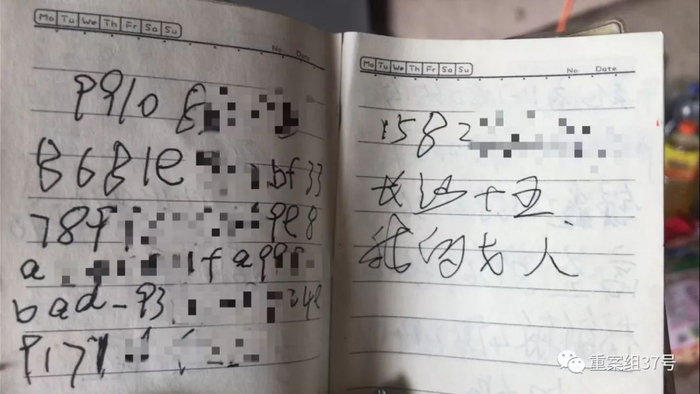 Mo Tu We Th Fr Sa Su
No Date
9910
8681e bf33
784 9e8
a ifa99
bad-93 24e
917
Mo Tu We Th Fr Sa Su
No Date
1582
长沙十五
我的女人
重案组37号